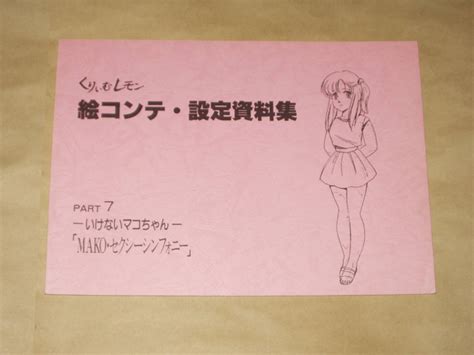 くりいむレモン
絵コンテ・設定資料集
PART 7
―いけないマコちゃん―
「MAKO・セクシーシンフォニー」